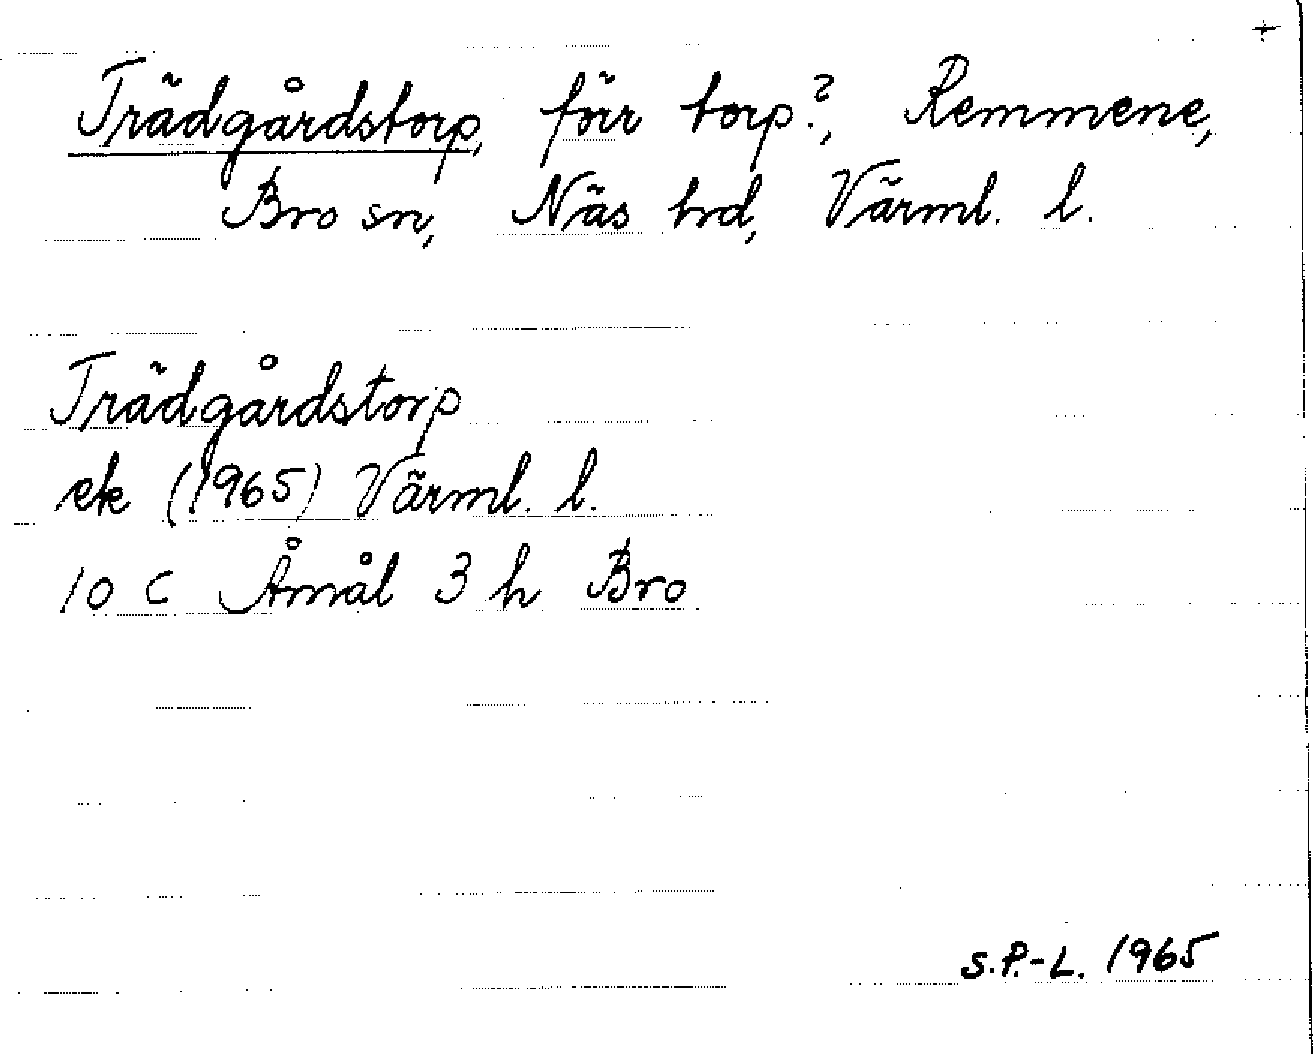 +
Trädgårdstorp, förr torp?, Remmene,
Bro sn, Näs hd, Värml. l.
Trädgårdstorp
ek (1965) Värml. l.
10 C Åmål 3 h Bro
S.P.-L. 1965